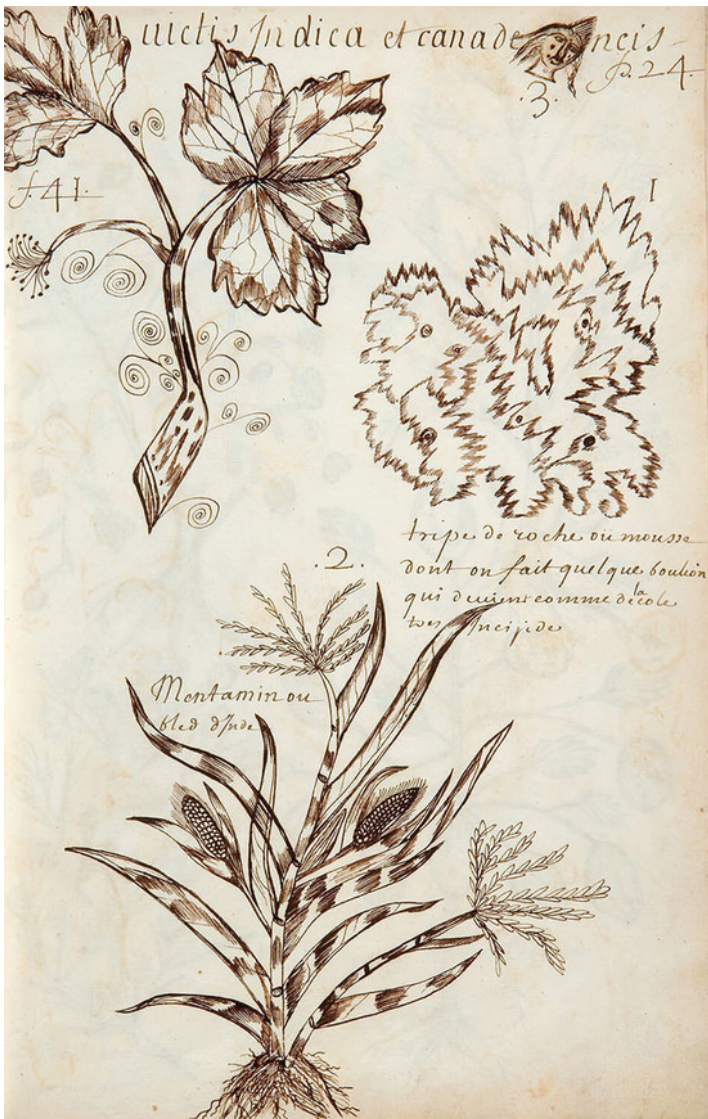 uictis Indica et canadensis
.3.
p. 24.
f. 41.
1
tripe de roche ou mousse
dont on fait quelque bouliion
qui deuient comme de la cole
tres Incipide
.2.
Mentamin ou
bled d'Inde